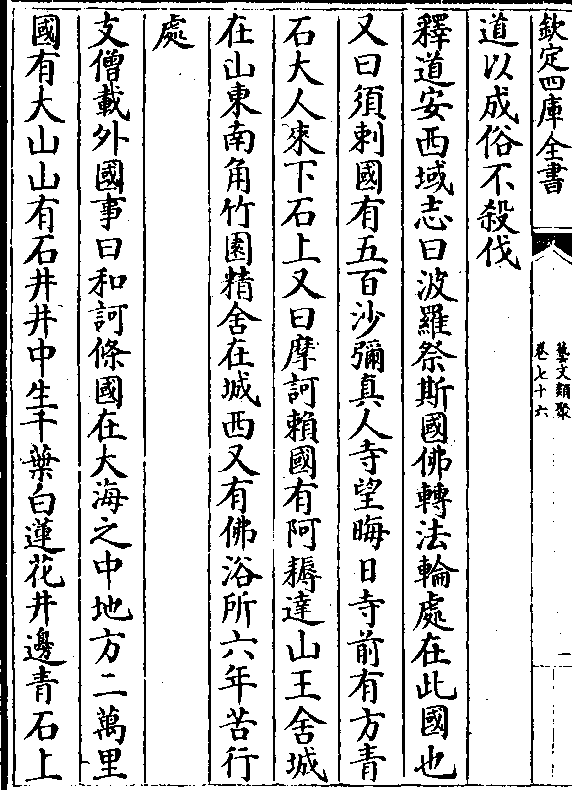 欽定四庫全書
藝文類聚
卷七十六
二
道以成俗不殺伐
釋道安西域志曰波羅柰斯國佛轉法輪處在此國也
又曰須剌國有五百沙彌真人寺望晦日寺前有方青
石大人來下石上又曰摩訶賴國有阿耨達山王舍城
在山東南角竹園精舍在城西又有佛浴所六年苦行
處
支僧載外國事曰和訶條國在大海之中地方二萬里
國有大山山有石井井中生千葉白蓮花井邊青石上